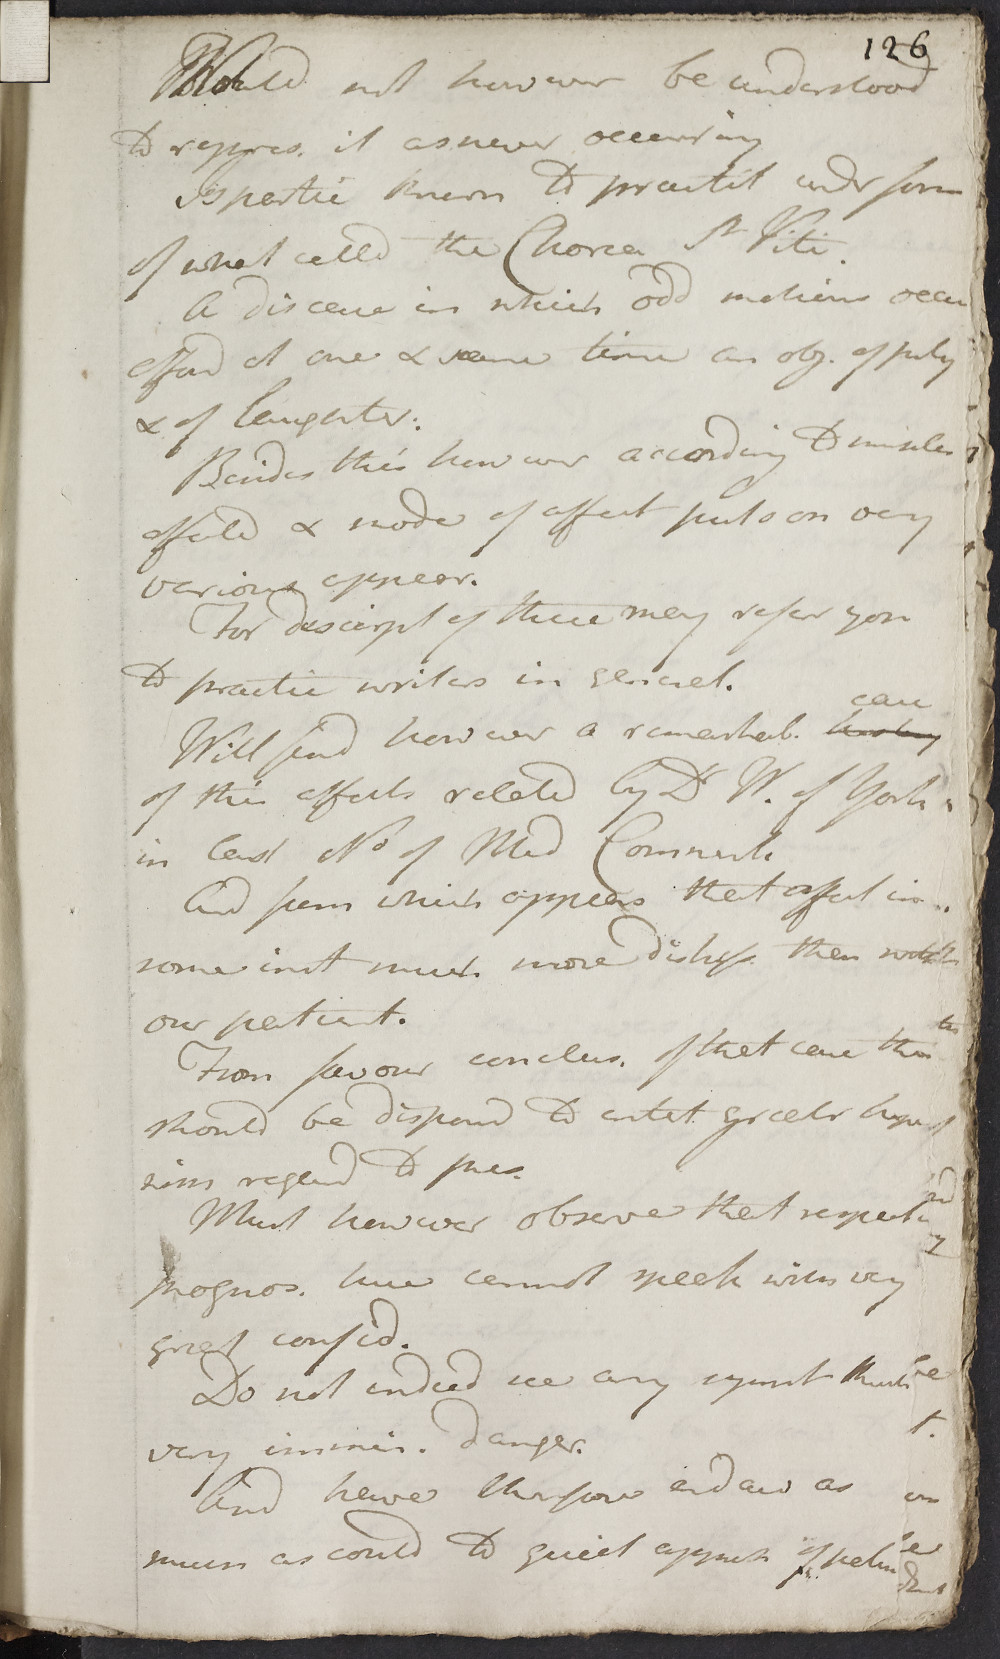 126
Would not however be understood
to repres. it as never occurring
Is partic known to practit under form
of what calld the Chorea St Viti.
A disease in which odd motions occur
afford at one & same time an obj. of pity
& of laughter.
Besides this however according to muscles
affectd & mode of affect puts on very
various appear.
For descript of these may refer you
to practic writers in general.
case
Will find however a remarkab. history
of this affect related by Dr W. of York
in last No of Med Comment
And from which appears that affect in
some inst much more distress. than with
our patient.
From favour conclus. of that case then
should be disposed to entert greater hopes
with regard to pres.
Must however observe that respecting
prognos. here cannot speak with very
great confid.
Do not indeed see any sympt
very immin. danger.
And have therefore endeav as
much as could to quiet appreh of patient